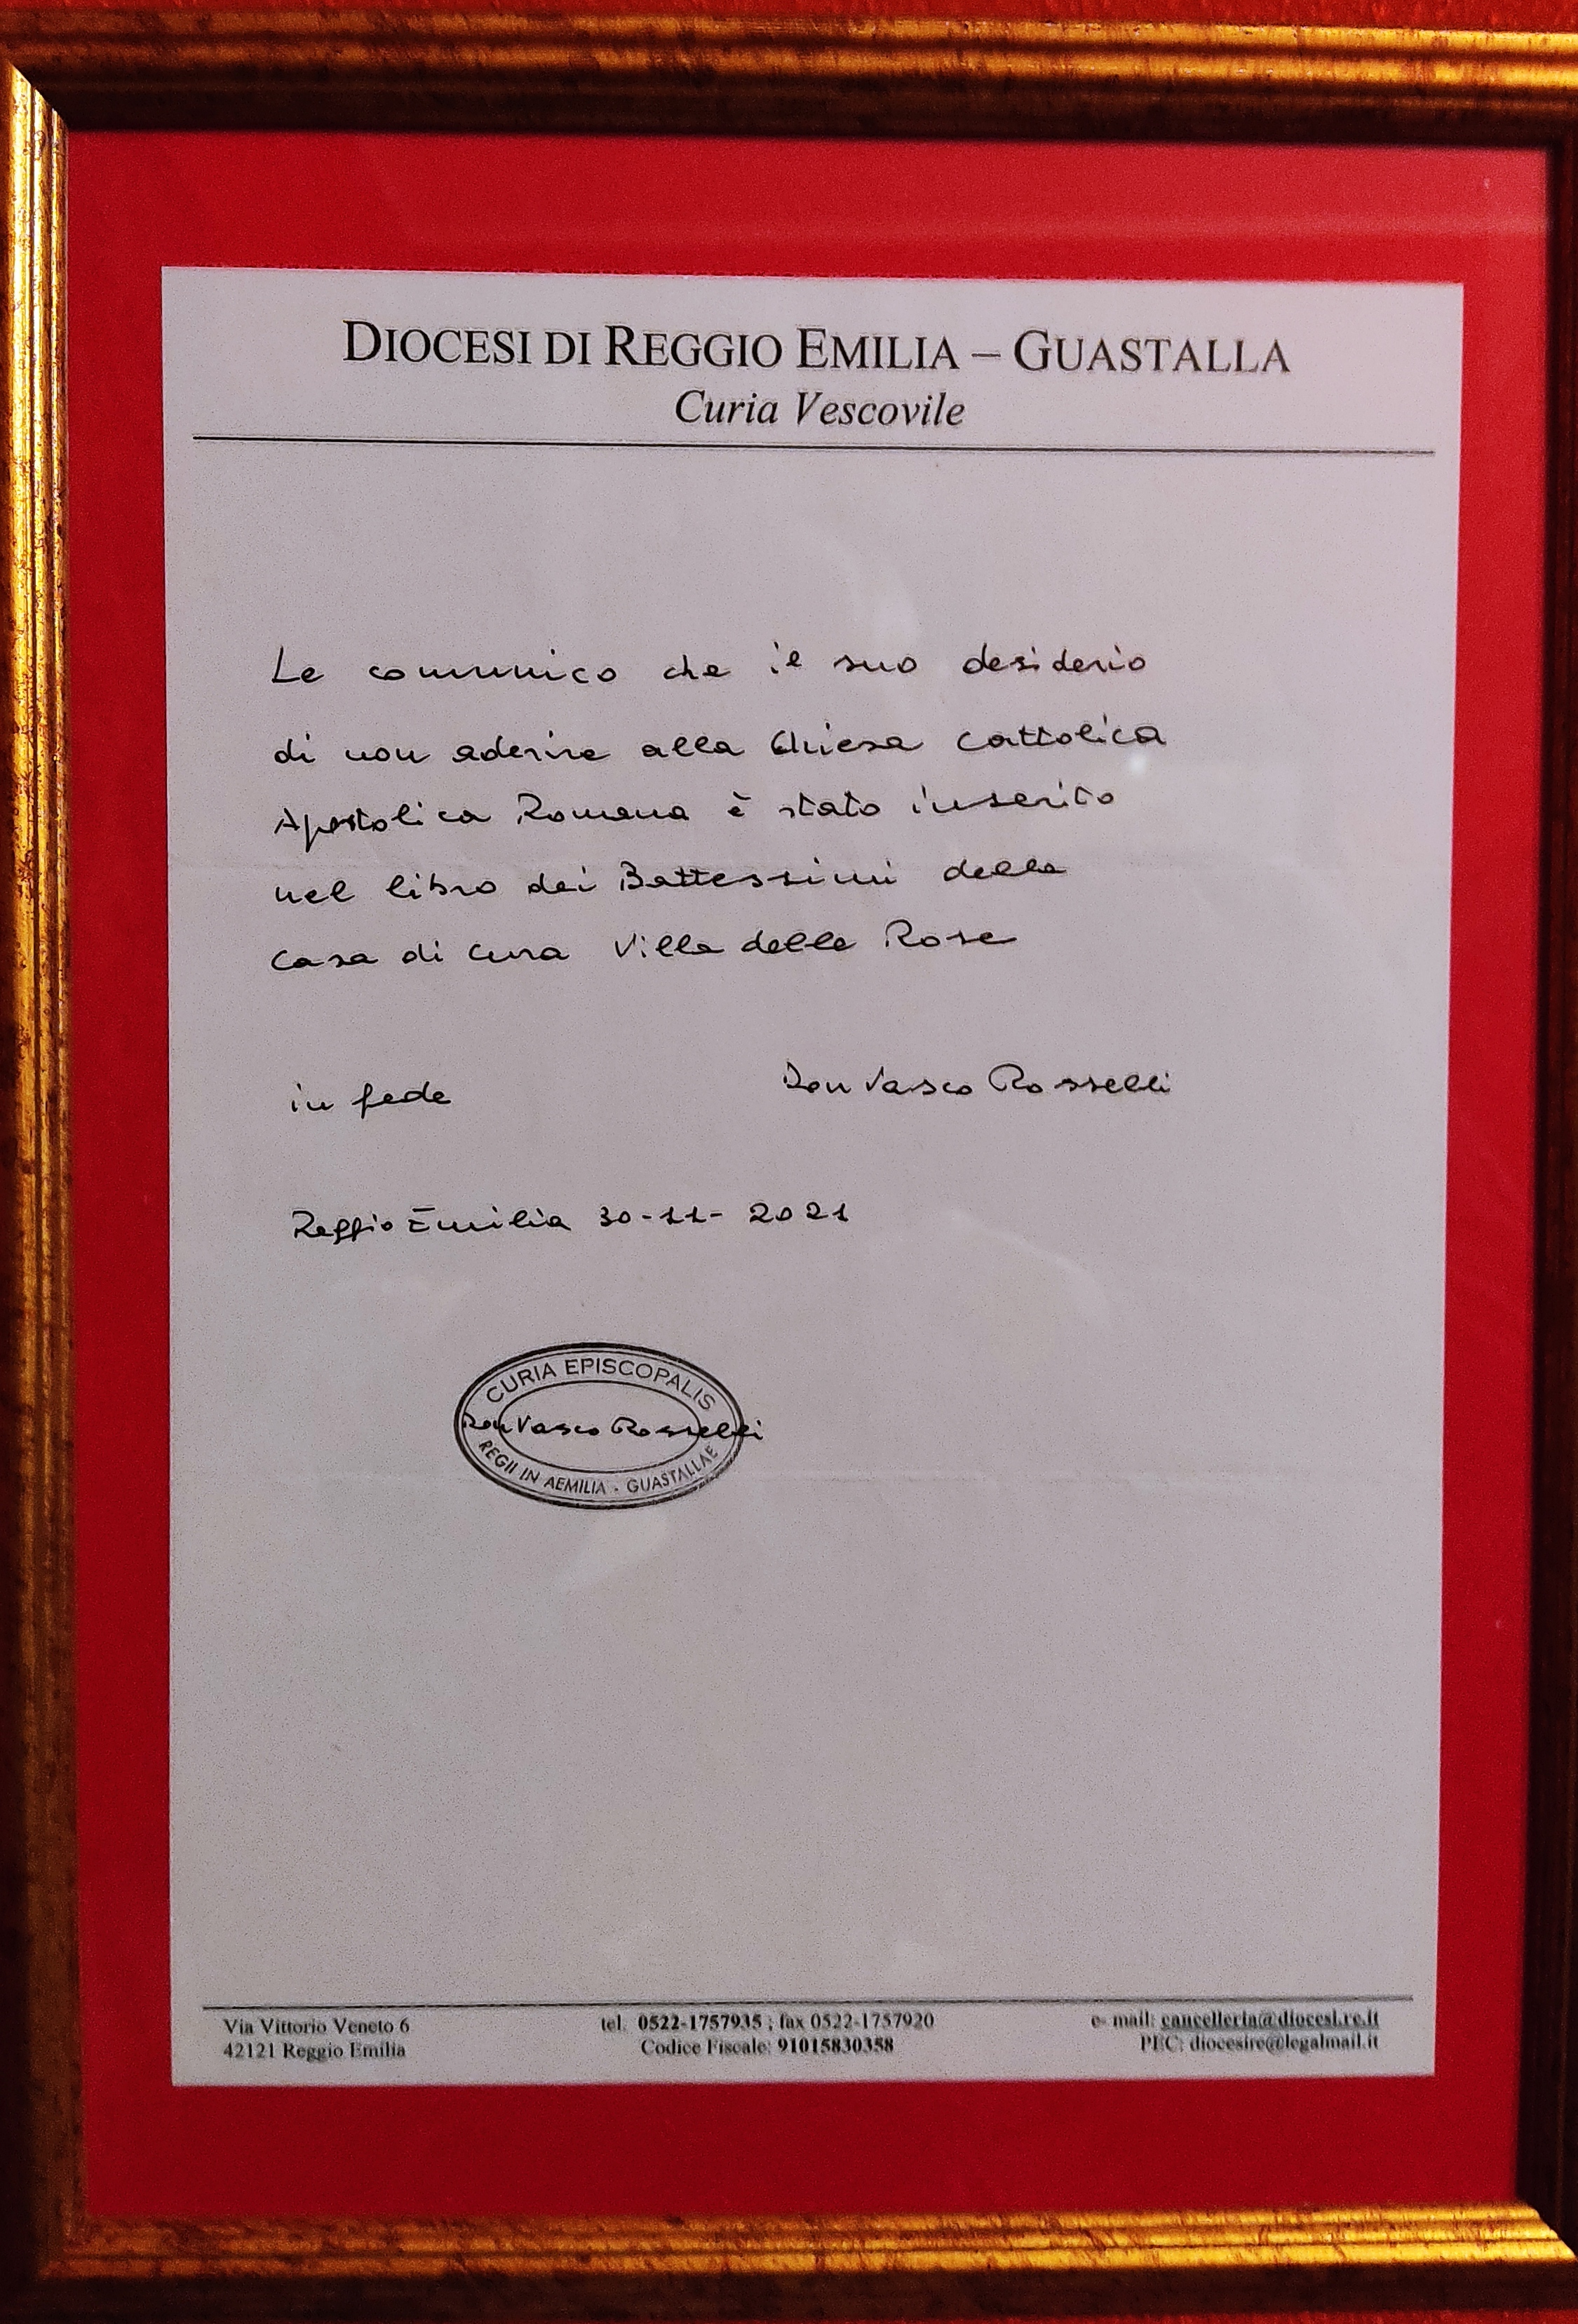 DIOCESI DI REGGIO EMILIA – GUASTALLA
Curia Vescovile
Le comunico che il suo desiderio
di non aderire alla Chiesa Cattolica
Apostolica Romana è stato inserito
nel libro dei Battessimi della
Casa di Cura Villa delle Rose
in fede
Don Vasco Rosselli
Reggio Emilia 30-11-2021
CURIA EPISCOPALIS
Don Vasco Rosselli
REGII IN AEMILIA - GUASTALLAE
Via Vittorio Veneto 6
42121 Reggio Emilia
tel. 0522-1757935 ; fax 0522-1757920
Codice Fiscale: 91015830358
e- mail: cancelleria@diocesi.re.it
PEC: diocesire@legalmail.it